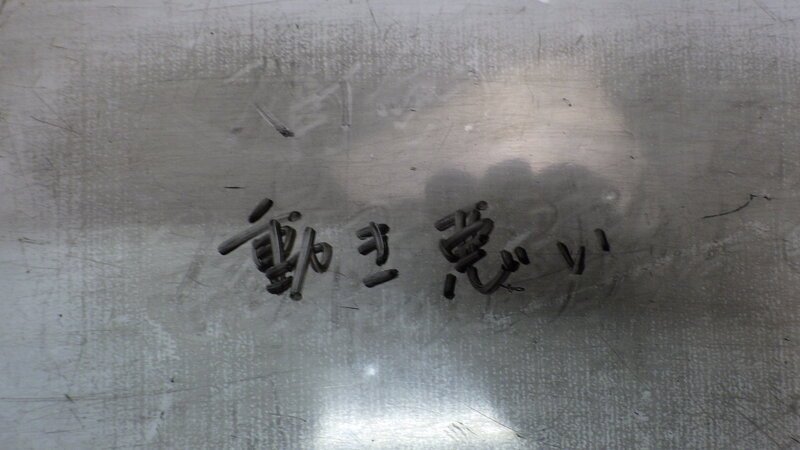 動き悪い